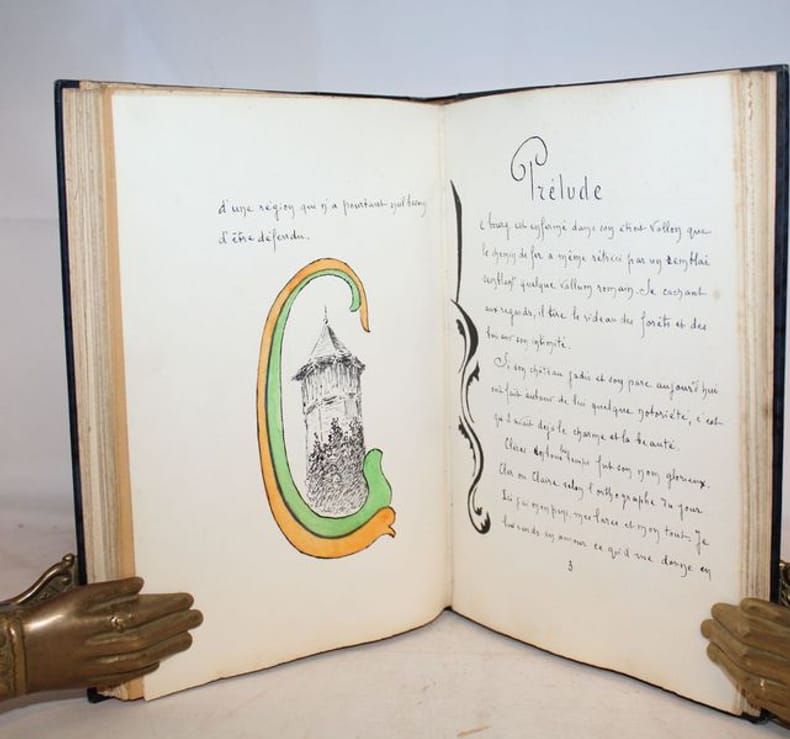 d'une région qui n'a pourtant nul besoin
d'être défendu.
Prélude
e bourg est enfermé dans son étroit vallon que
le chemin de fer a même rétréci par un remblai
semblant quelque vallum romain. Se cachant
aux regards, il tire le rideau des forêts et des
sur son intimité.
Si son château jadis et son parc aujourd'hui
ont fait autour de lui quelque notoriété, c'est
qu'il avait déjà le charme et la beauté.
Clères temps fut son nom glorieux,
Cler ou Claire selon l'orthographe du jour
Ici j'ai mon pays, mes lares et mon tout. Je
lui rends en amour ce qu'il me donne en
3